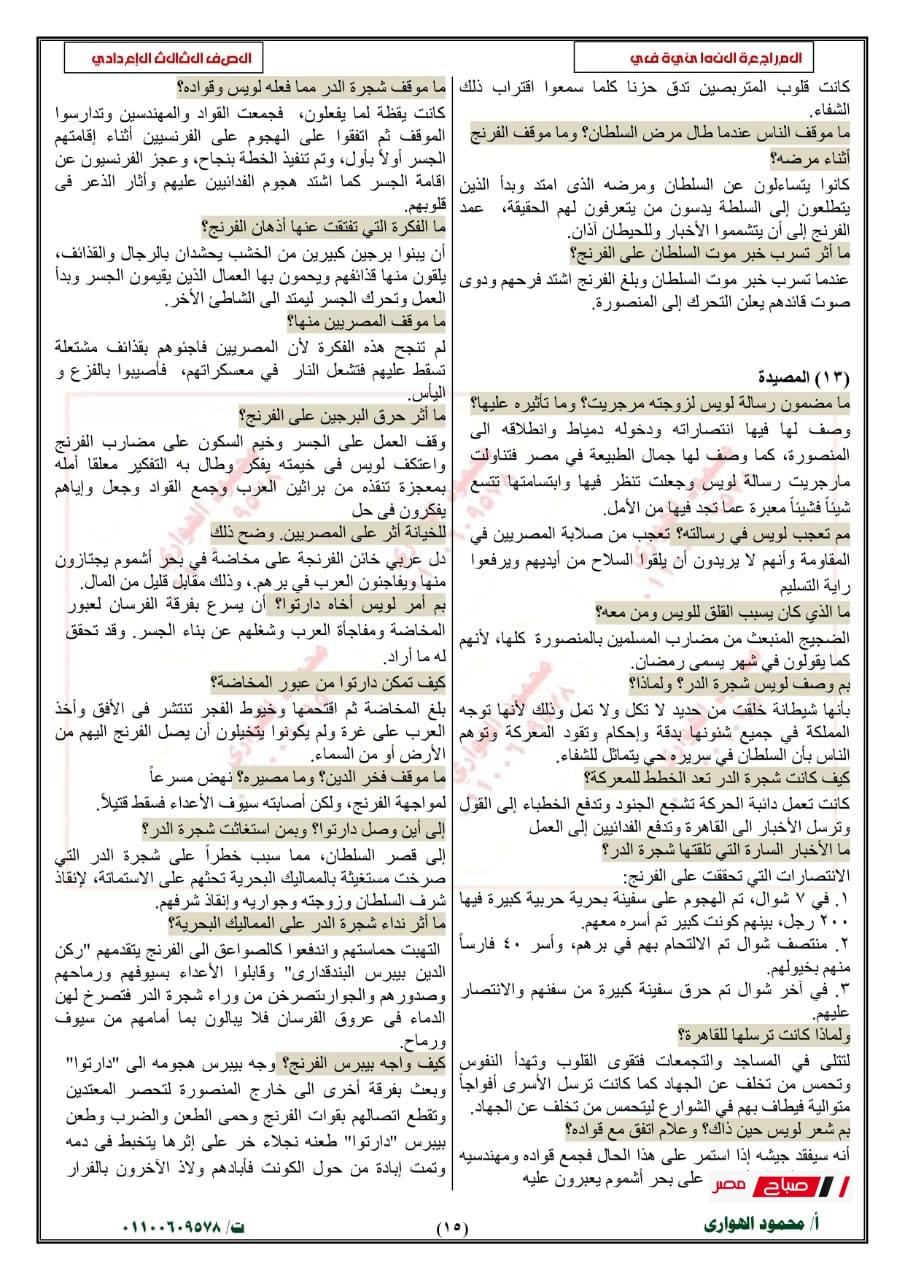 المراجعة النهائية في
الصف الثالث الإعدادي
كانت قلوب المتربصين تدق حزنا كلما سمعوا اقتراب ذلك
الشفاء.
ما موقف الناس عندما طال مرض السلطان؟ وما موقف الفرنج
أثناء مرضه؟
كانوا يتساءلون عن السلطان ومرضه الذى امتد وبدأ الذين
يتطلعون إلى السلطة يدسون من يتعرفون لهم الحقيقة، عمد
الفرنج إلى أن يتشمموا الأخبار وللحيطان آذان.
ما أثر تسرب خبر موت السلطان على الفرنج؟
عندما تسرب خبر موت السلطان وبلغ الفرنج اشتد فرحهم ودوى
صوت قائدهم يعلن التحرك إلى المنصورة.
(١٣) المصيدة
ما مضمون رسالة لويس لزوجته مرجريت؟ وما تأثيره عليها؟
وصف لها فيها انتصاراته ودخوله دمياط وانطلاقه الى
المنصورة، كما وصف لها جمال الطبيعة في مصر فتناولت
مارجريت رسالة لويس وجعلت تنظر فيها وابتسامتها تتسع
شيئاً فشيئاً معبرة عما تجد فيها من الأمل.
مم تعجب لويس في رسالته؟ تعجب من صلابة المصريين في
المقاومة وأنهم لا يريدون أن يلقوا السلاح من أيديهم ويرفعوا
راية التسليم
ما الذي كان يسبب القلق للويس ومن معه؟
الضجيج المنبعث من مضارب المسلمين بالمنصورة كلها، لأنهم
كما يقولون في شهر يسمى رمضان.
بم وصف لويس شجرة الدر؟ ولماذا؟
بأنها شيطانة خلقت من حديد لا تكل ولا تمل وذلك لأنها توجه
المملكة في جميع شئونها بدقة وإحكام وتقود المعركة وتوهم
الناس بأن السلطان في سريره حي يتماثل للشفاء.
كيف كانت شجرة الدر تعد الخطط للمعركة؟
كانت تعمل دائبة الحركة تشجع الجنود وتدفع الخطباء إلى القول
وترسل الأخبار الى القاهرة وتدفع الفدائيين إلى العمل
ما الأخبار السارة التي تلقتها شجرة الدر؟
الانتصارات التي تحققت على الفرنج:
١. في ٧ شوال، تم الهجوم على سفينة بحرية حربية كبيرة فيها
٢٠٠ رجل، بينهم كونت كبير تم أسره معهم.
٢. منتصف شوال تم الالتحام بهم في برهم، وأسر ٤٠ فارساً
منهم بخيولهم.
٣. في آخر شوال تم حرق سفينة كبيرة من سفنهم والانتصار
عليهم.
ولماذا كانت ترسلها للقاهرة؟
لتتلى في المساجد والتجمعات فتقوى القلوب وتهدأ النفوس
وتحمس من تخلف عن الجهاد كما كانت ترسل الأسرى أفواجاً
متوالية فيطاف بهم في الشوارع ليتحمس من تخلف عن الجهاد.
بم شعر لويس حين ذاك؟ وعلام اتفق مع قواده؟
أنه سيفقد جيشه إذا استمر على هذا الحال فجمع قواده ومهندسيه
على بحر أشموم يعبرون عليه
ما موقف شجرة الدر مما فعله لويس وقواده؟
كانت يقظة لما يفعلون، فجمعت القواد والمهندسين وتدارسوا
الموقف ثم اتفقوا على الهجوم على الفرنسيين أثناء إقامتهم
الجسر أولاً بأول، وتم تنفيذ الخطة بنجاح، وعجز الفرنسيون عن
اقامة الجسر كما اشتد هجوم الفدائيين عليهم وأثار الذعر فى
قلوبهم.
ما الفكرة التي تفتقت عنها أذهان الفرنج؟
أن يبنوا برجين كبيرين من الخشب يحشدان بالرجال والقذائف،
يلقون منها قذائفهم ويحمون بها العمال الذين يقيمون الجسر وبدأ
العمل وتحرك الجسر ليمتد الى الشاطئ الأخر.
ما موقف المصريين منها؟
لم تنجح هذه الفكرة لأن المصريين فاجئوهم بقذائف مشتعلة
تسقط عليهم فتشعل النار في معسكراتهم، فأصيبوا بالفزع و
اليأس.
ما أثر حرق البرجين على الفرنج؟
وقف العمل على الجسر وخيم السكون على مضارب الفرنج
واعتكف لويس فى خيمته يفكر وطال به التفكير معلقا أمله
بمعجزة تنقذه من براثين العرب وجمع القواد وجعل وإياهم
يفكرون فى حل
للخيانة أثر على المصريين. وضح ذلك
دل عربي خائن الفرنجة على مخاضة في بحر أشموم يجتازون
منها ويفاجئون العرب في برهم.، وذلك مقابل قليل من المال.
بم أمر لويس أخاه دارتوا؟ أن يسرع بفرقة الفرسان لعبور
المخاضة ومفاجأة العرب وشغلهم عن بناء الجسر. وقد تحقق
له ما أراد.
كيف تمكن دارتوا من عبور المخاضة؟
بلغ المخاضة ثم اقتحمها وخيوط الفجر تنتشر فى الأفق وأخذ
العرب على غرة ولم يكونوا يتخيلون أن يصل الفرنج اليهم من
الأرض أو من السماء.
ما موقف فخر الدين؟ وما مصيره؟ نهض مسرعاً
لمواجهة الفرنج، ولكن أصابته سيوف الأعداء فسقط قتيلاً.
إلى أين وصل دارتوا؟ وبمن استغاثت شجرة الدر؟
إلى قصر السلطان، مما سبب خطراً على شجرة الدر التي
صرخت مستغيثة بالمماليك البحرية تحثهم على الاستماتة، لإنقاذ
شرف السلطان وزوجته وجواريه وإنقاذ شرفهم.
ما أثر نداء شجرة الدر على المماليك البحرية؟
التهبت حماستهم واندفعوا كالصواعق الى الفرنج يتقدمهم "ركن
الدين بيبرس البندقدارى" وقابلوا الأعداء بسيوفهم ورماحهم
وصدورهم والجوارىتصرخن من وراء شجرة الدر فتصرخ لهن
الدماء فى عروق الفرسان فلا يبالون بما أمامهم من سيوف
ورماح.
كيف واجه بيبرس الفرنج؟ وجه بيبرس هجومه الى "دارتوا"
وبعث بفرقة أخرى الى خارج المنصورة لتحصر المعتدين
وتقطع اتصالهم بقوات الفرنج وحمى الطعن والضرب وطعن
بيبرس "دارتوا" طعنه نجلاء خر على إثرها يتخبط فى دمه
وتمت إبادة من حول الكونت فأبادهم ولاذ الآخرون بالفرار
صباح مصر
أ/ محمود الهوارى
(١٥)
ت/ ٠١١٠٠٦٠٩٥٧٨